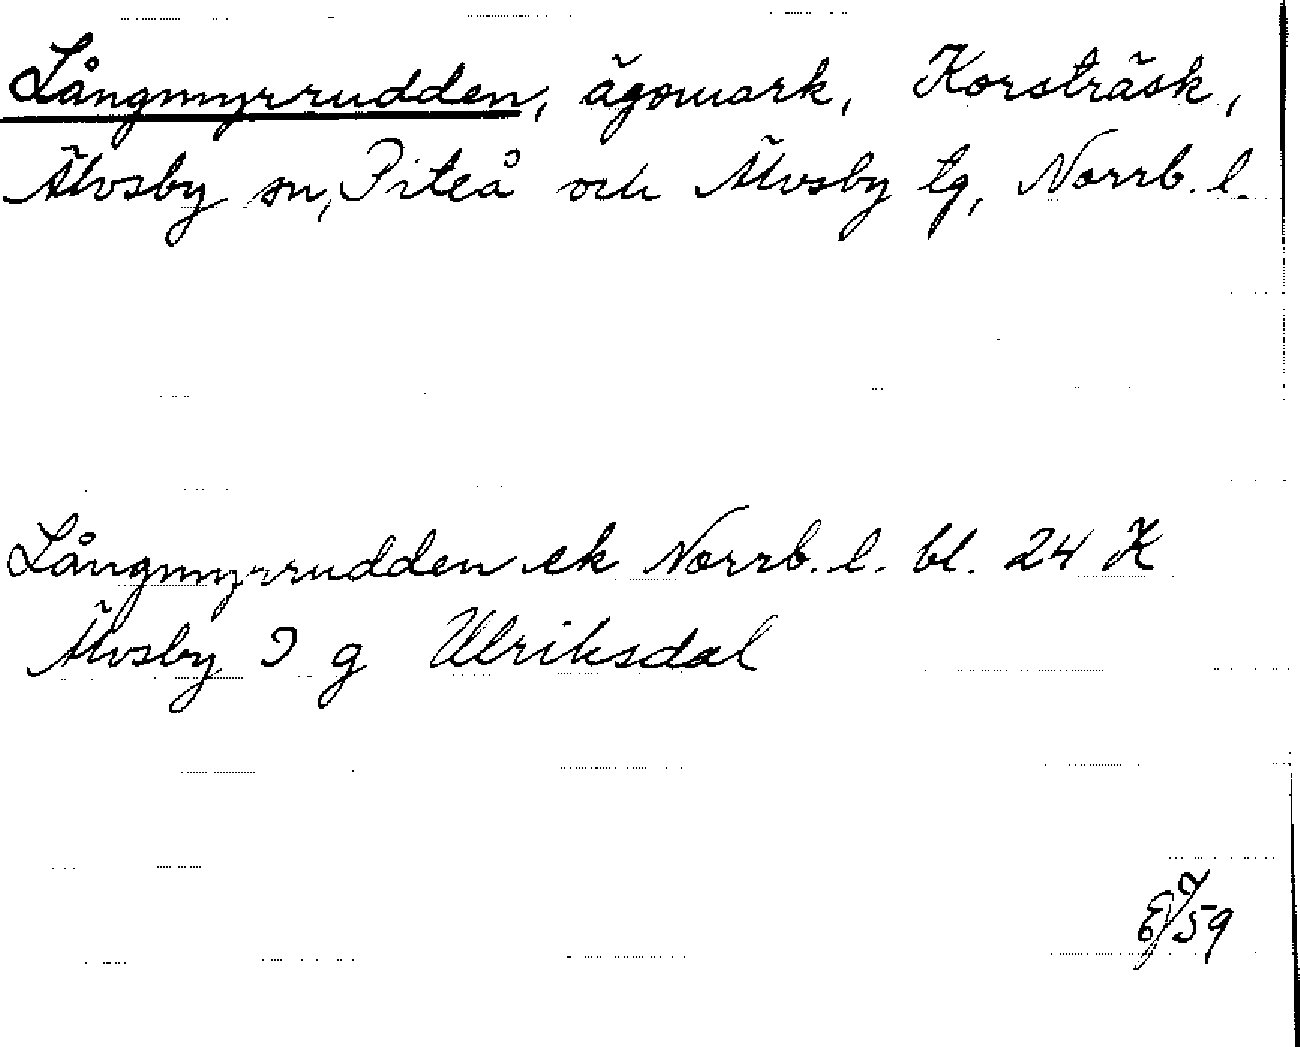 Långmyrrudden, ägomark, Korsträsk,
Älvsby sn, Piteå och Älvsby tg, Norrb. l.
Långmyrrudden ek Norrb. l. bl. 24 K
Älvsby J g Ulriksdal
59